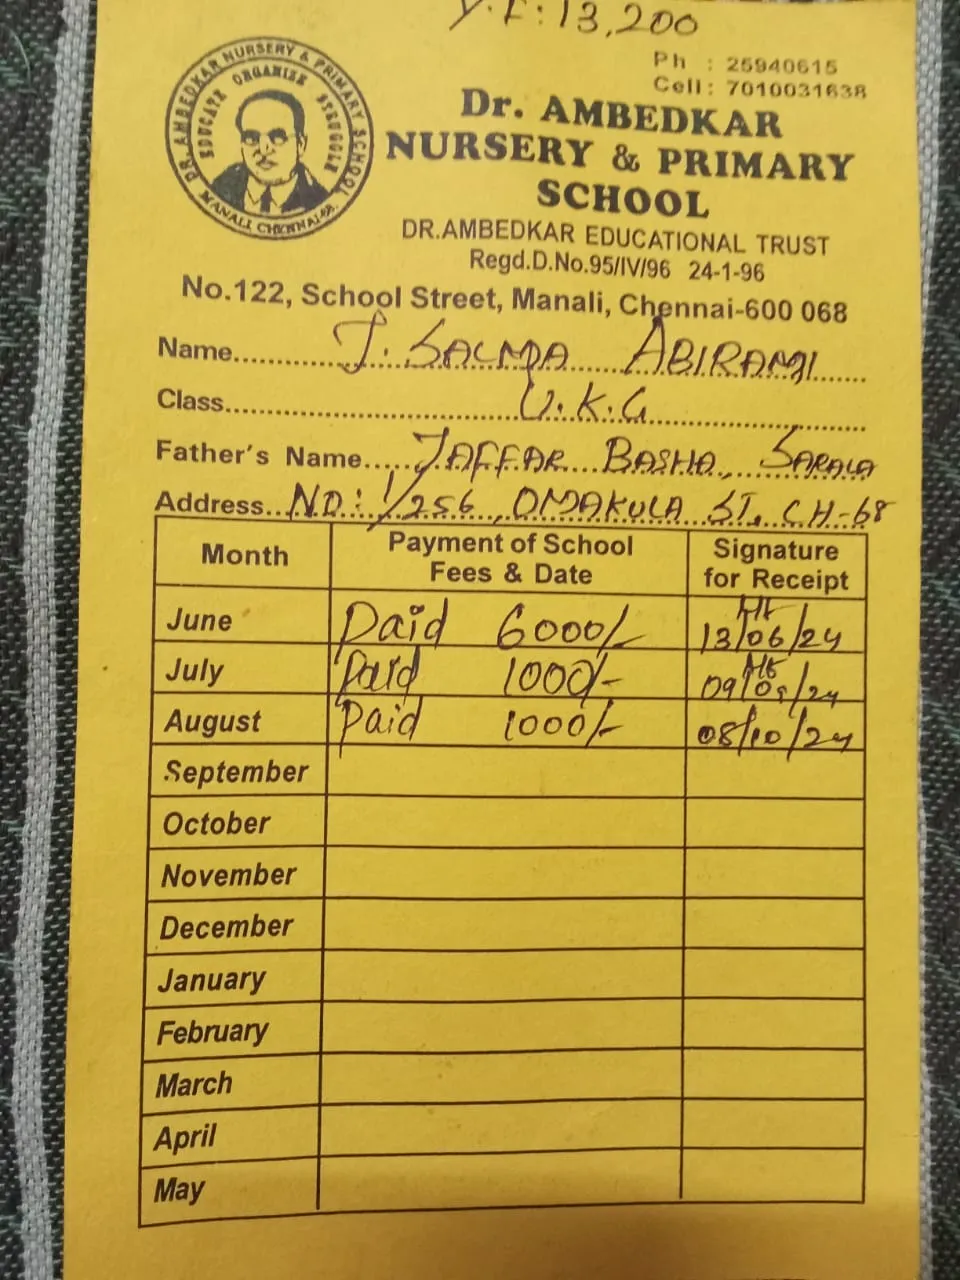 Y.F: 13,200
Ph : 25940615
Cell : 7010031638
DR. AMBEDKAR NURSERY & PRIMARY SCHOOL
EDUCATE ORGANISE STRUGGLE
MANALI CHENNAI-68.
Dr. AMBEDKAR
NURSERY & PRIMARY
SCHOOL
DR.AMBEDKAR EDUCATIONAL TRUST
Regd.D.No.95/IV/96 24-1-96
No.122, School Street, Manali, Chennai-600 068
Name J. SALMA ABIRAMI
Class U.K.G
Father's Name JAFFAR BASHA, SARALA
Address NO: 1/256, OMAKULA ST, CH-68
Month Payment of School Fees & Date Signature for Receipt
June Paid 6000/- 13/06/24
July Paid 1000/- 09/09/24
August Paid 1000/- 08/10/24
September
October
November
December
January
February
March
April
May